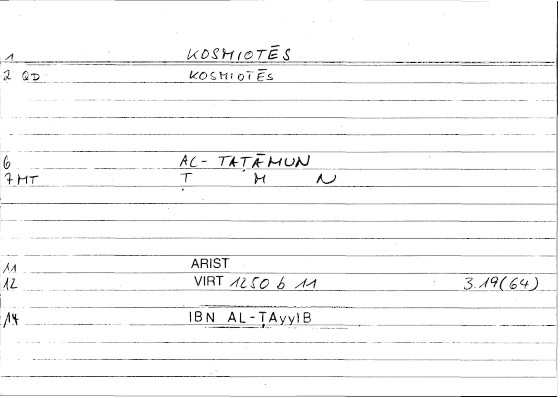 1 KOSMIOTĒS
2 QD KOSMIOTĒS
6 AL-TAṬĀMUN
7 MT Ṭ M N
11 ARIST
12 VIRT 1250 b 11 3.19(64)
14 IBN AL-ṬAyyIB